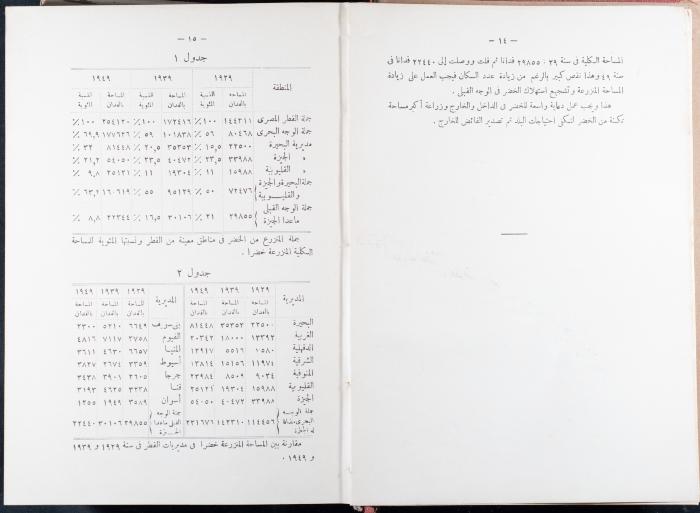 — ١٤ —
المساحة الكلية فى سنة ٢٩ : ٢٩٨٥٥ فدانا ثم قلت ووصلت إلى ٢٢٤٤٠ فدانا فى
سنة ٤٩ وهذا نقص كبير بالرغم من زيادة عدد السكان فيجب العمل على زيادة
المساحة المزرعة وتشجيع استهلاك الخضر فى الوجه القبلى .
هذا ويجب عمل دعاية واسعة للخضر فى الداخل والخارج وزراعة أكبر مساحة
ممكنة من الخضر لتكفى احتياجات البلد ثم تصدير الفائض للخارج .
— ١٥ —
جدول ١
المنطقة ١٩٢٩ ١٩٣٩ ١٩٤٩
المساحة بالفدان النسبة المئوية المساحة بالفدان النسبة المئوية المساحة بالفدان النسبة المئوية
جملة القطر المصرى ١٤٤٣١١ ١٠٠ ٪ ١٧٢٤١٦ ١٠٠ ٪ ٢٥٤١٢٠ ١٠٠ ٪
جملة الوجه البحرى ٨٠٤٦٨ ٥٦ ٪ ١٠١٨٣٨ ٥٩ ٪ ١٧٧٦٢٦ ٦٩,٩ ٪
مديرية البحيرة ٢٢٥٠٠ ١٥,٥ ٪ ٣٥٣٥٣ ٢٠,٥ ٪ ٨١٤٤٨ ٣٢ ٪
» الجيزة ٣٣٩٨٨ ٢٣,٥ ٪ ٤٠٤٧٢ ٢٣,٥ ٪ ٥٤٠٥٠ ٢١,٢ ٪
» القليوبية ١٥٩٨٨ ١١ ٪ ١٩٣٠٤ ١١ ٪ ٢٥١٢١ ٩,٨ ٪
جملة البحيرة والجيزة
والقليوبية ٧٢٤٧٦ ٥٠ ٪ ٩٥١٢٩ ٥٥ ٪ ١٦٠٦١٩ ٦٣,٢ ٪
جملة الوجه القبلى
ماعدا الجيزة ٢٩٨٥٥ ٢١ ٪ ٣٠١٠٦ ١٦,٥ ٪ ٢٢٣٤٤ ٨,٨ ٪
جملة المنزرع من الخضر فى مناطق معينة من القطر ونسبتها المئوية للمساحة
الكلية المنزرعة خضرا .
جدول ٢
المديرية ١٩٢٩ ١٩٣٩ ١٩٤٩ المديرية ١٩٢٩ ١٩٣٩ ١٩٤٩
المساحة بالفدان المساحة بالفدان المساحة بالفدان المساحة بالفدان المساحة بالفدان المساحة بالفدان
البحيرة ٢٢٥٠٠ ٣٥٣٥٢ ٨١٤٤٨ بنى سويف ٦٦٤٩ ٥٢١٠ ٢٣٠٠
الغربية ١٣٣٩٢ ١٨٠٠٠ ٢٠٣٤٢ الفيوم ٣٧٥٨ ٧١١٧ ٤٨١٦
الدقهلية ١٠٥٨٠ ٥٥١٦ ١٣٩١٧ المنيا ٦٦٥٧ ٤٦٣٠ ٣٦١١
الشرقية ١١٩٧٤ ١٥١٥٦ ١٣٨١٤ أسيوط ٣٣٥٩ ٢٦٧٤ ٣٨٢٧
المنوفية ٩٠٣٤ ٨٥٠٩ ٢٣٩٨٤ جرجا ٢٦٠٥ ٣٩٠١ ٣٤٣٨
القليوبية ١٥٩٨٨ ١٩٣٠٤ ٢٥١٢١ قنا ٣٢٣٨ ٤٦٢٥ ٣١٩٣
الجيزة ٣٣٩٨٨ ٤٠٤٧٢ ٥٤٠٥٠ أسوان ٣٥٨٩ ١٩٤٩ ١٢٥٥
جملة الوجه البحرى ١١٤٤٥٦ ١٤٢٣١٠ ٢٣١٦٧٦ جملة الوجه القبلى ماعدا الجيزة ٢٩٨٥٥ ٣٠١٠٦ ٢٢٤٤٠
مقارنة بين المساحة المنزرعة خضرا فى مديريات القطر فى سنة ١٩٢٩ و ١٩٣٩
و ١٩٤٩ .